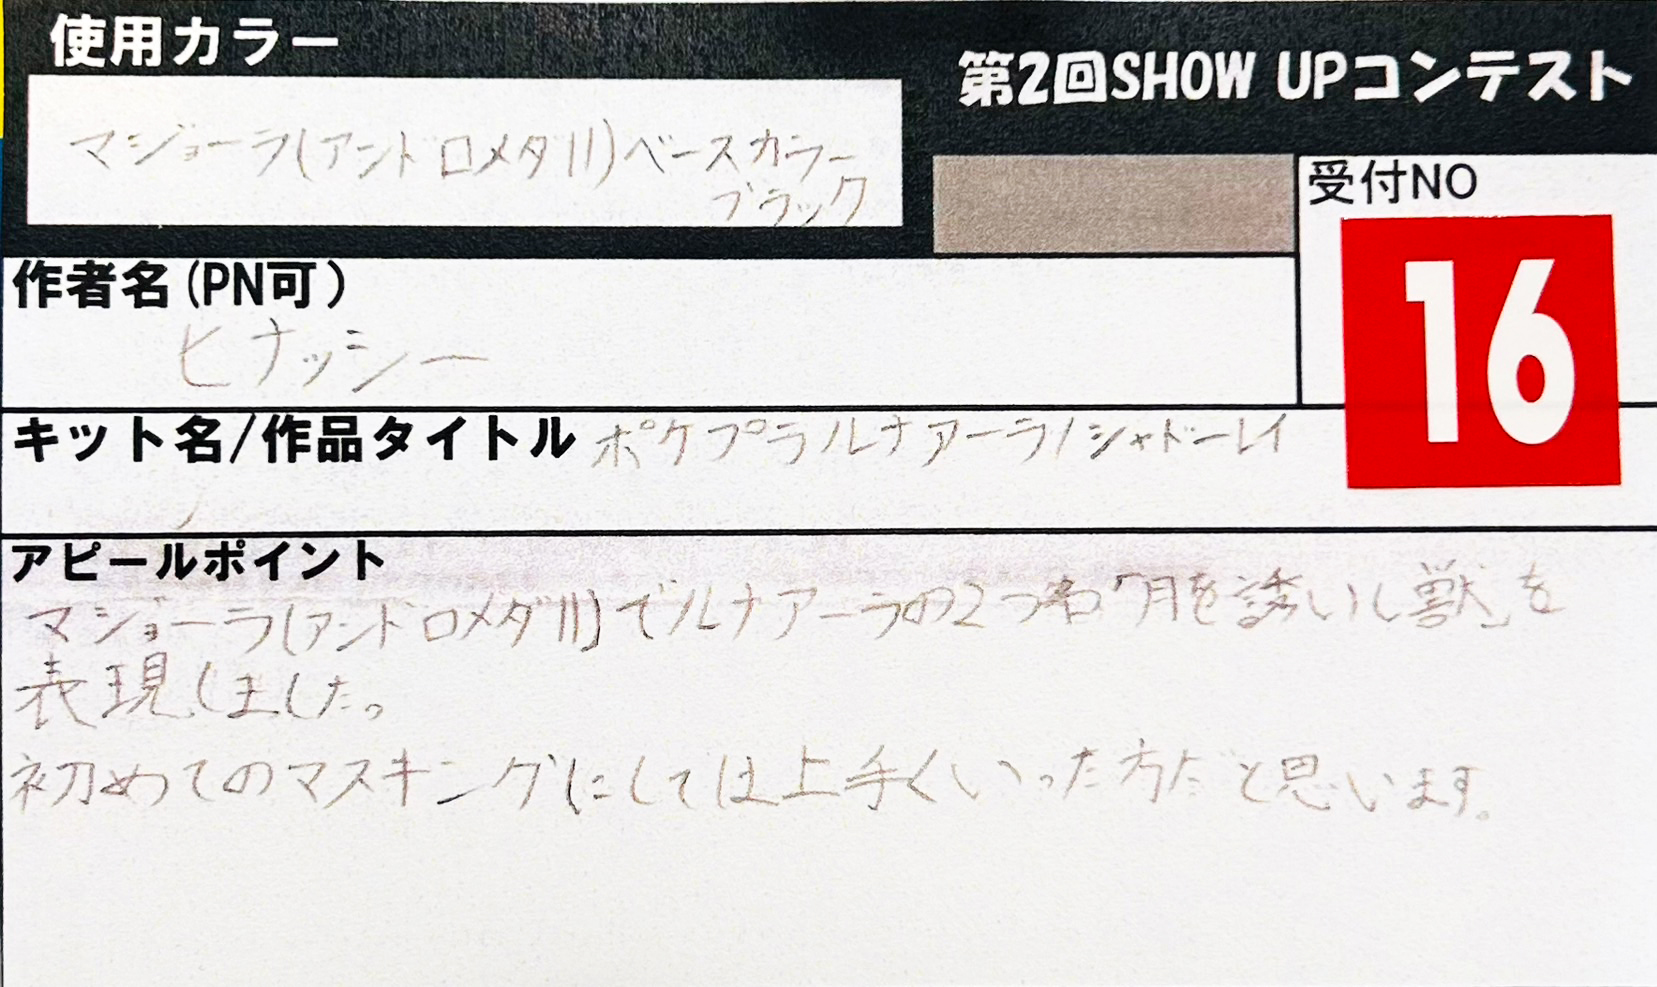 使用カラー
第2回SHOW UPコンテスト
マジョーラ(アンドロメダII)ベースカラー
ブラック
受付NO
16
作者名(PN可)
ヒナッシー
キット名/作品タイトル ポケプラルナアーラ/シャドーレイ
アピールポイント
マジョーラ(アンドロメダII)でルナアーラの2つ名「月を誘いし獣」を
表現しました。
初めてのマスキングにしては上手くいった方だと思います。